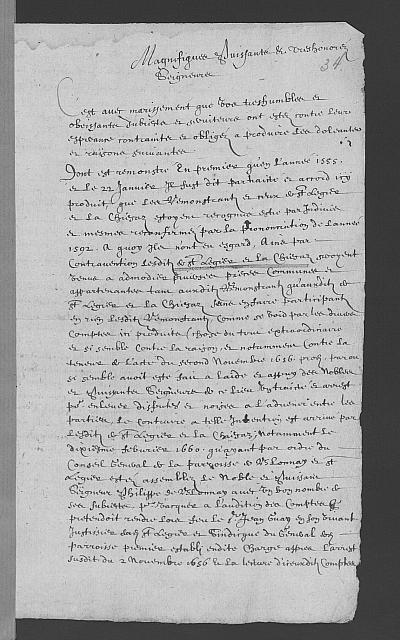 Magnifiques Puissants & treshonorez
Seigneurs
34
C'est avec marrissement que vos treshumbles et
obeissants subiets et serviteurs ont estez contre leur
esperance contraints et obligez a produire les doleances
et raisons suivantes
Dont est remonstré En premier qu'en l'année 1555.
et le 22 Janvier Il fust dit parfaite et accord icy
produit, que les Remonstrants et ceux de St Legier
et La Chiesaz estoyent recognus estre par Indivis
et mesmes reconfirmez par la Prononciation de l'année
1592. A quoy Ils n'ont eu esgard, Ains par
Contravention lesdits de St Legier et La Chiesaz
venus a admodier diverses pieces Communes et
appartenantes tant auxdits Remonstrants qu'auxdits de
St Legier et la Chiesaz sans en faire participants
en rien lesdits Remonstrants, comme se void par les divers
Comptes icy produits chose du tout extraordinaire
et si semble contre la raison, et notamment contre la
teneur de l'acte du second Novembre 1656 par ou
si semble avoit esté fait a l'aide et des Nobles
et Puissants Seigneurs de ce lieu et arrest
pr enlever disputes et noises a l'advenir entre les
parties, Le contraire a telle Intention est arrivé par
lesdits de St Legier et La Chiesaz, Notamment le
dixiesme febvrier 1660. qu'ayant par ordre du
Conseil General de la parroisse de Blonnay et St
Legier estez assemblez le Noble et Puissant
Seigneur Philippe de Blonnay avec bon nombre de
ses subiets pr vacquer a l'audition des Comptes que
pretendoit rendre feu le Sr Jean Guay en son vivant
Justicier dud St Legier et Sindicque du General de
parroisse premier establi en dite Charge apres l'arrest
susdit du 2 Novembre 1656 & la lecture d'iceux dits Comptes